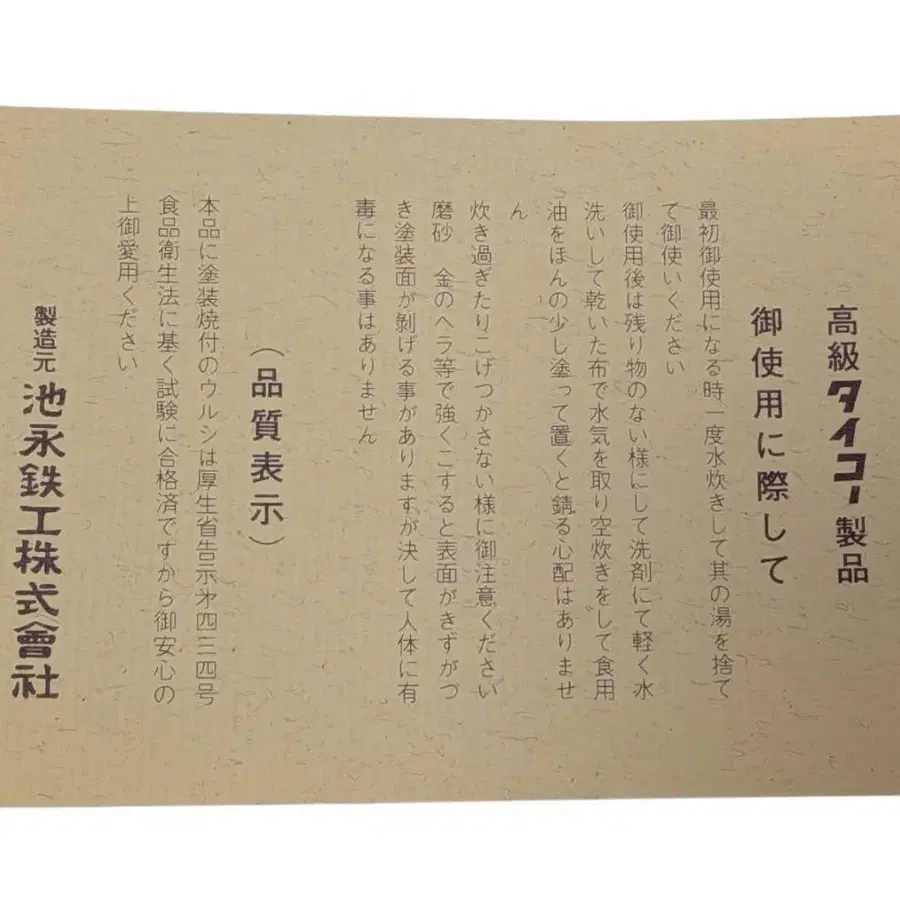 高級タイコー製品
御使用に際して
最初御使用になる時一度水炊きして其の湯を捨て
て御使いください
御使用後は残り物のない様にして洗剤にて軽く水
洗いして乾いた布で水気を取り空炊きをして食用
油をほんの少し塗って置くと錆る心配はありませ
ん
炊き過ぎたりこげつかさない様に御注意ください
磨砂　金のヘラ等で強くこすると表面がきずがづ
き塗装面が剝げる事がありますが決して人体に有
毒になる事はありません
（品質表示）
本品に塗装焼付のウルシは厚生省告示㐧四三四号
食品衛生法に基く試験に合格済ですから御安心の
上御愛用ください
製造元 池永鉄工株式會社